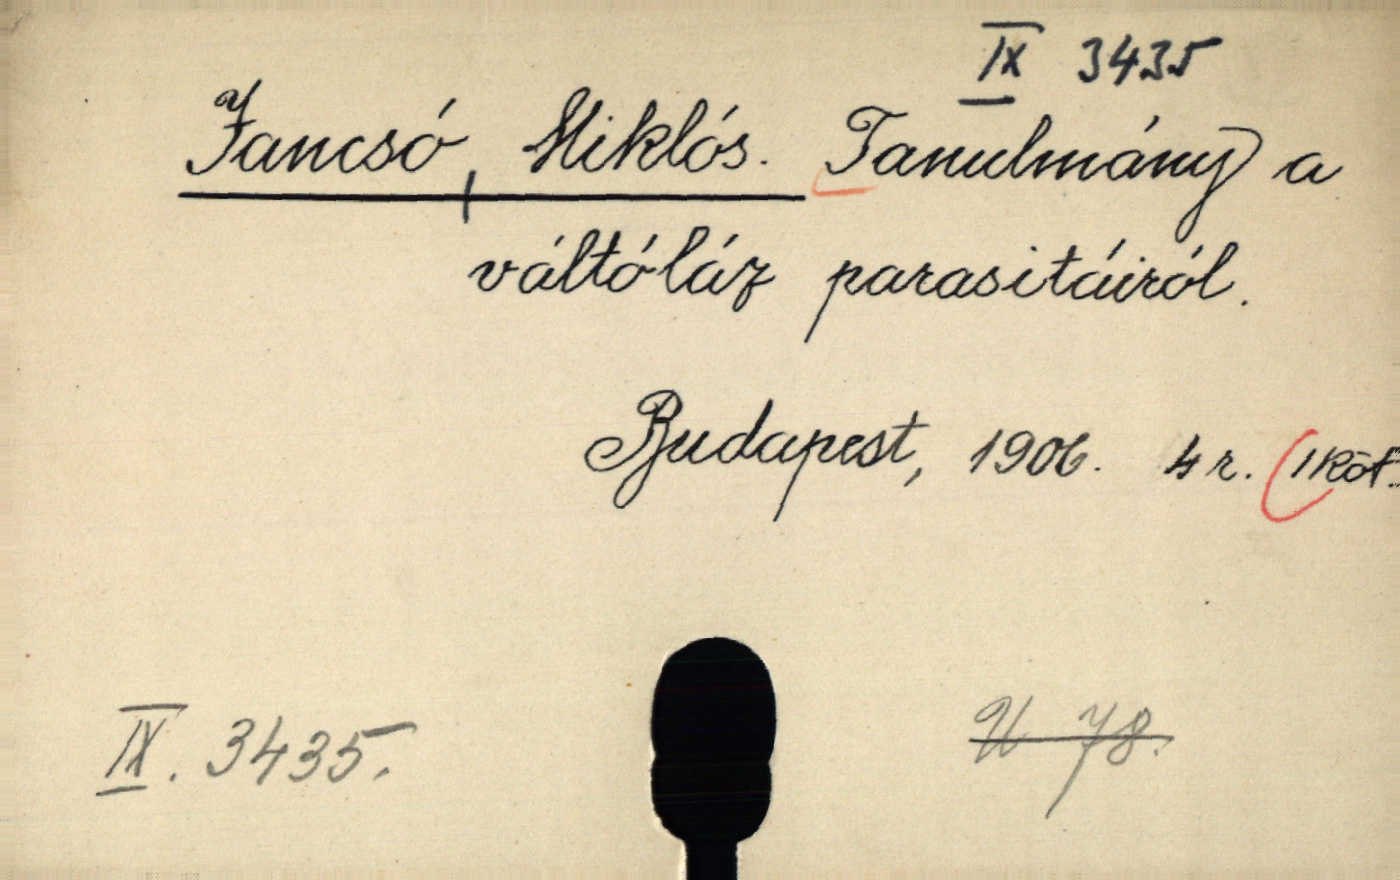 IX 3435
Jancsó, Miklós. Tanulmány a
váltóláz parasitáiról.
Budapest, 1906. 4 r. (1 köt.
IX. 3435.
U 78.